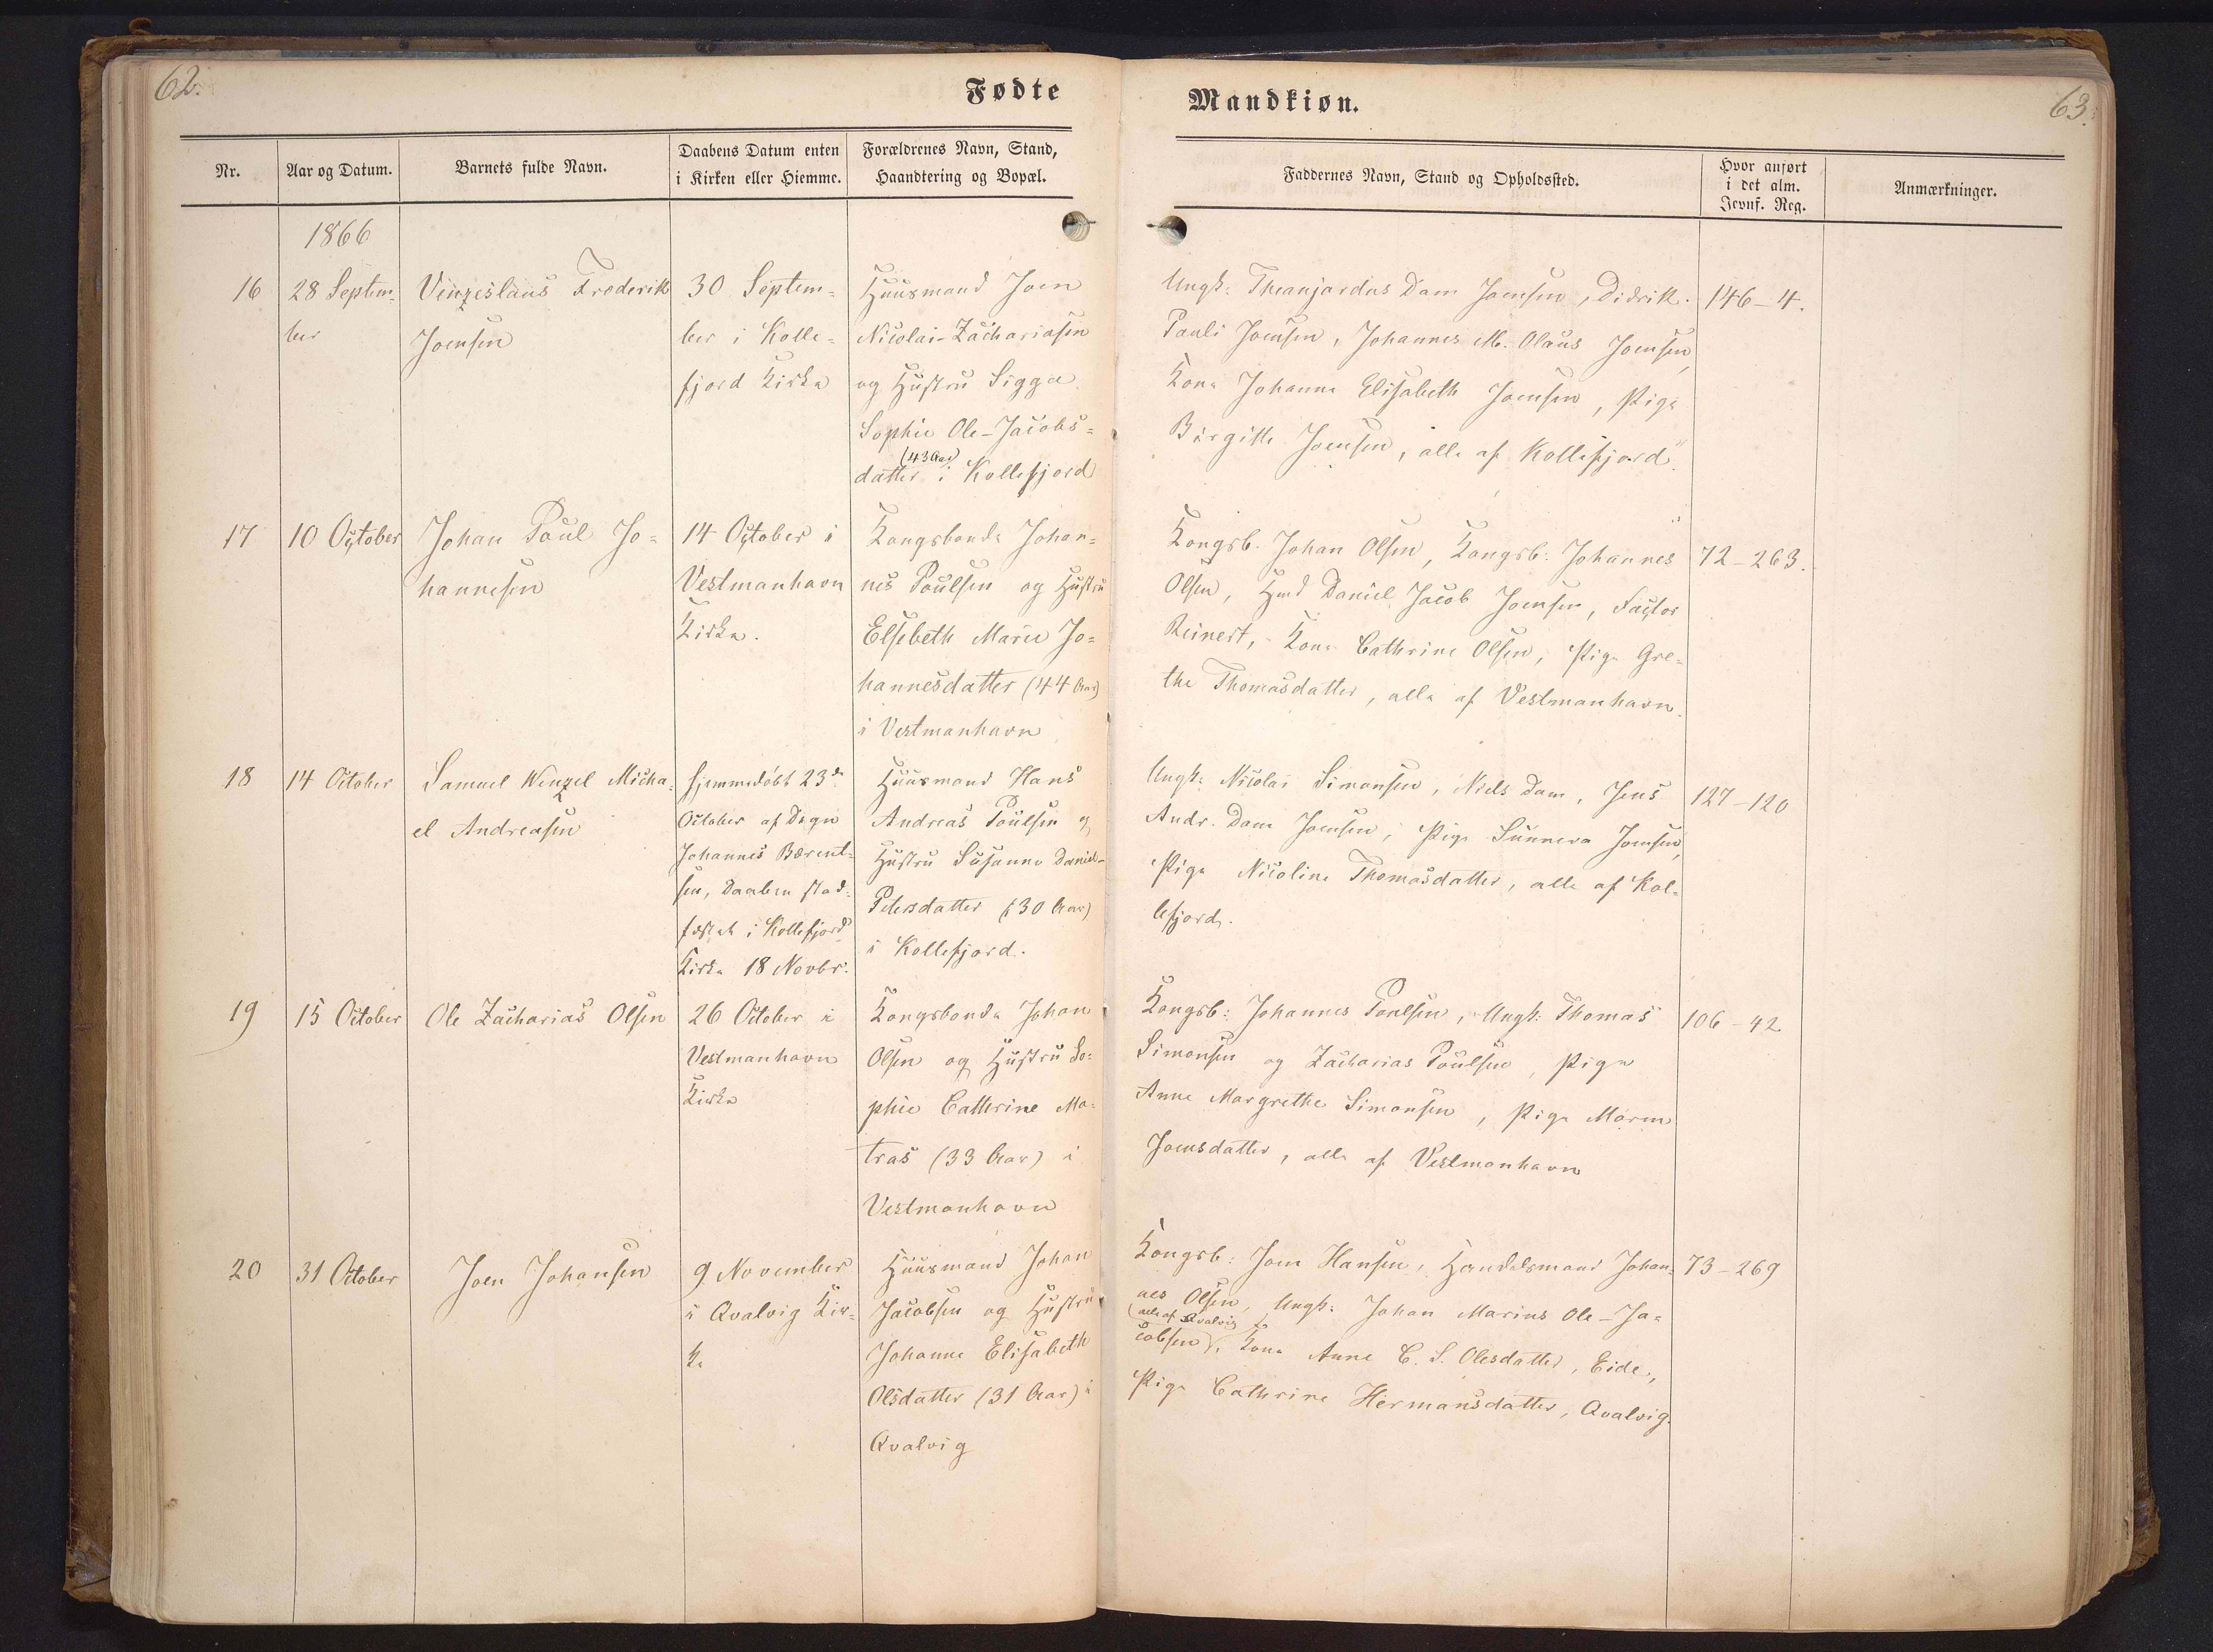 62.
Fødte
Nr.
Aar og Datum.
Barnets fulde Navn.
Daabens Datum enten
i Kirken eller Hiemme.
Forældrenes Navn, Stand,
Haandtering og Bopæl.
1866
16
28 Septem-
ber
Venzeslaus Frederik
Joensen
30 Septem-
ber i Kolle-
fjord Kirke
Huusmand Joen
Nicolai Zachariasen
og Hustru Sigga
Sophie Ole-Jacobs-
(43 Aar)
datter i Kollefjord
17
10 October
Johan Poul Jo-
hannesen
14 October i
Vestmanhavn
Kirke.
Kongsbonde Johan-
nes Poulsen og Hustru
Elsebeth Marie Jo-
hannesdatter (44 Aar)
i Vestmanhavn
18
14 October
Samuel Wenzel Micha-
el Andreasen
hjemmedöbt 23de
October af Degn
Johannes Bærent-
sen, Daaben stad-
fæstet i Kollefjord
Kirke 18 Novbr.
Huusmand Hans
Andreas Poulsen og
Hustru Susanne Daniel-
Petersdatter (30 Aar)
i Kollefjord.
19
15 October
Ole Zacharias Olsen
26 October i
Vestmanhavn
Kirke
Kongsbonde Johan
Olsen og Hustru So-
phie Cathrine Ma-
tras (33 Aar) i
Vestmanhavn
20
31 October
Joen Johansen
9 November
i Qvalvig Kir-
ke
Huusmand Johan
Jacobsen og Hustru
Johanne Elisabeth
Olsdatter (31 Aar) i
Qvalvig
Mandkiøn.
63.
Faddernes Navn, Stand og Opholdssted.
Hvor anført
i det alm.
Jevnf. Reg.
Anmærkninger.
Ungk: Dam Joensen, Didrik
Pauli Joensen, Johannes M. Olaus Joensen,
Kone Johanne Elisabeth Joensen, Pige
Birgitte Joensen, alle af Kollefjord.
146-4.
Kongsb. Johan Olsen, Kongsb: Johannes
Olsen, Hmd Daniel Jacob Joensen, Factor
Reinert, Kone Cathrine Olsen, Pige Gre-
the Thomasdatter, alle af Vestmanhavn.
72-263.
Ungk: Nicolai Simonsen, Niels Dam, Jens
Andr. Dam Joensen, Pige Sunneva Joensen,
Pige Nicoline Thomasdatter, alle af Kol-
lefjord.
127-120
Kongsb: Johannes Poulsen, Ungk: Thomas
Simonsen og Zacharias Poulsen, Pige
Anne Margrethe Simonsen, Pige Maren
Joensdatter, alle af Vestmanhavn
106-42
Kongsb: Joen Hansen, Handelsmand Johan-
nes Olsen, Ungk: Johan Marius Ole-Ja-
(alle af Qvalvig)
cobsen, Kone Anne C. S. Olesdatter, Eide,
Pige Cathrine Hermansdatter, Qvalvig.
73-269